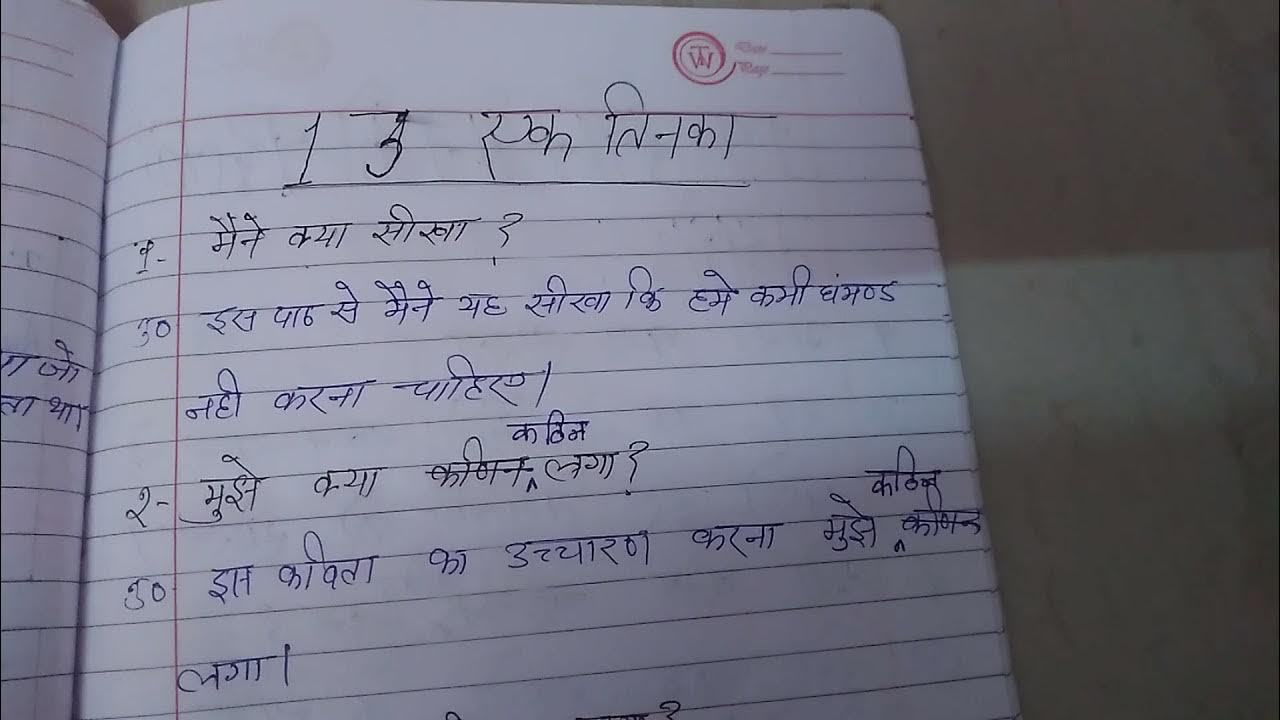 Date
Page
13 एक तिनका
१- मैंने क्या सीखा ?
उ० इस पाठ से मैने यह सीखा कि हमे कभी घंमण्ड
नही करना चाहिए।
कठिन
२- मुझे क्या कठिन लगा ?
कठिन
उ० इस कविता का उच्चारण करना मुझे
लगा।
ा जो
ता था।